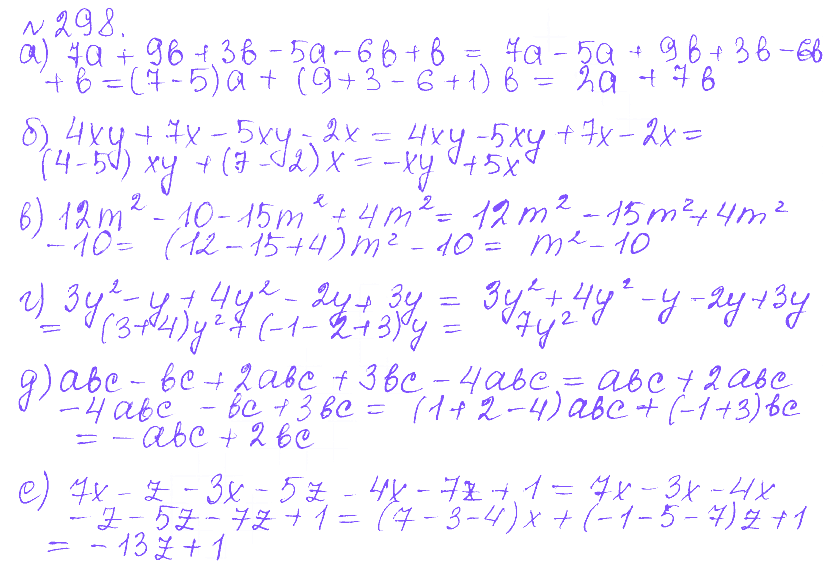 №298.
а) 7a + 9b + 3b - 5a - 6b + b = 7a - 5a + 9b + 3b - 6b
+ b = (7 - 5)a + (9 + 3 - 6 + 1) b = 2a + 7b
б) 4xy + 7x - 5xy - 2x = 4xy - 5xy + 7x - 2x =
(4 - 5) xy + (7 - 2) x = -xy + 5x
в) 12m² - 10 - 15m² + 4m² = 12m² - 15m² + 4m²
- 10 = (12 - 15 + 4)m² - 10 = m² - 10
г) 3y² - y + 4y² - 2y + 3y = 3y² + 4y² - y - 2y + 3y
= (3 + 4)y² + (-1 - 2 + 3)y = 7y²
д) abc - bc + 2abc + 3bc - 4abc = abc + 2abc
- 4abc - bc + 3bc = (1 + 2 - 4)abc + (-1 + 3)bc
= - abc + 2bc
е) 7x - z - 3x - 5z - 4x - 7z + 1 = 7x - 3x - 4x
- z - 5z - 7z + 1 = (7 - 3 - 4)x + (-1 - 5 - 7)z + 1
= - 13z + 1